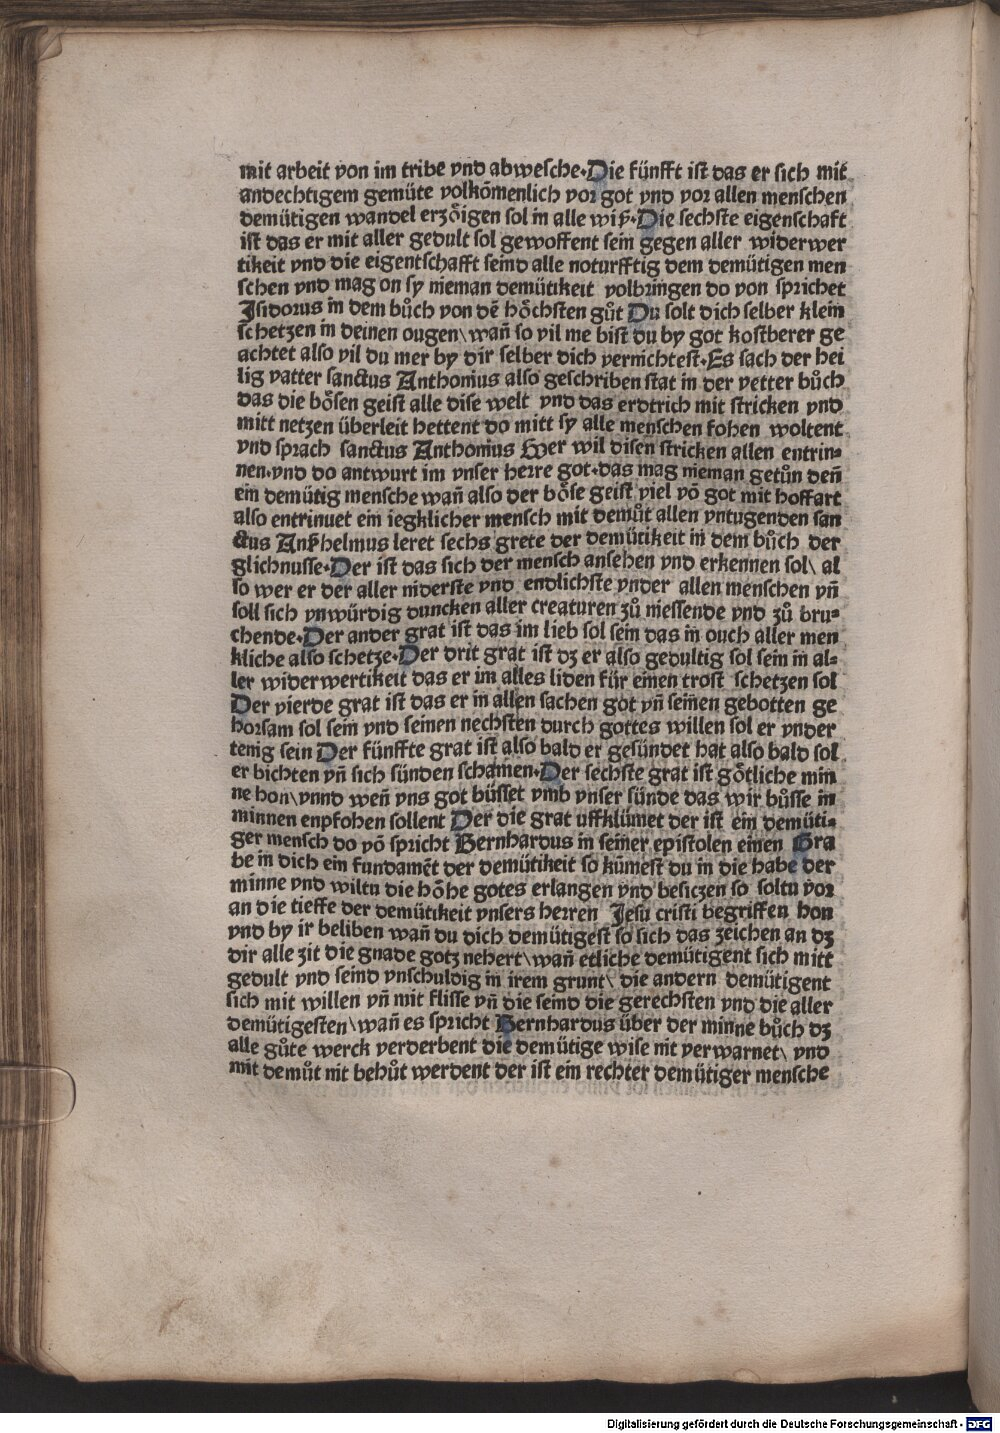 mit arbeit von im tribe vnd abwesche·Die fünfft ist das er sich mit
andechtigem gemüte volkōmenlich vor got vnd vor allen menschen
demütigen wandel erzöigen sol in alle wiß·Die sechste eigenschaft
ist das er mit aller gedult sol gewoffent sein gegen aller widerwer
tikeit vnd die eigentschafft seind alle noturfftig dem demütigen men
schen vnd mag on sy nieman demütikeit volbringen do von sprichet
Jsidorus in dem bůch von dē höchsten gůt Du solt dich selber klein
schetzen in deinen ougen\ wañ so vil me bist du by got kostberer ge
achtet also vil du mer by dir selber dich vernichtest·Es sach der hei
lig vatter sanctus Anthonius also geschriben stat in der vetter bůch
das die bösen geist alle dise welt vnd das erdtrich mit stricken vnd
mitt netzen überleit hettent do mitt sy alle menschen fohen woltent
vnd sprach sanctus Anthonius Wer wil disen stricken allen entrin⸗
nen·vnd do antwurt im vnser herre got·das mag nieman getůn deñ
ein demütig mensche wañ also der böse geist viel vō got mit hoffart
also entrinuet ein iegklicher mensch mit demůt allen vntugenden san
ctus Anßhelmus leret sechs grete der demütikeit in dem bůch der
glichnusse·Der ist das sich der mensch ansehen vnd erkennen sol\ al
so wer er der aller niderste vnd endlichste vnder allen menschen vñ
soll sich vnwürdig duncken aller creaturen zů niessende vnd zů bru⸗
chende·Der ander grat ist das im lieb sol sein das in ouch aller men
kliche also schetze·Der drit grat ist dz er also gedultig sol sein in al⸗
ler widerwertikeit das er im alles liden für einen trost schetzen sol
Der vierde grat ist das er in allen sachen got vñ seinen gebotten ge
horsam sol sein vnd seinen nechsten durch gottes willen sol er vnder
tenig sein Der fünffte grat ist also bald er gesündet hat also bald sol
er bichten vñ sich sünden schamen·Der sechste grat ist götliche min
ne hon\ vnnd weñ vns got büsset vmb vnser sünde das wir bůsse in
minnen enpfohen sollent Der die grat uffklümet der ist ein demüti⸗
ger mensch do vō spricht Bernhardus in seiner epistolen einen Gra
be in dich ein fundamēt der demütikeit so kūmest du in die habe der
minne vnd wiltu die höhe gotes erlangen vnd besiczen so soltu vor
an die tieffe der demütikeit vnsers herren Jesu cristi begriffen hon
vnd by ir beliben wañ du dich demütigest so sich das zeichen an dz
dir alle zit die gnade gotz nehert\ wañ etliche demütigent sich mitt
gedult vnd seind vnschuldig in irem grunt\ die andern demütigent
sich mit willen vñ mit flisse vñ die seind die gerechsten vnd die aller
demütigesten\ wañ es spricht Bernhardus über der minne bůch dz
alle gůte werck verderbent die demütige wise nit verwarnet\ vnd
mit demůt nit behůt werdent der ist ein rechter demütiger mensche
Digitalisierung gefördert durch die Deutsche Forschungsgemeinschaft - DFG